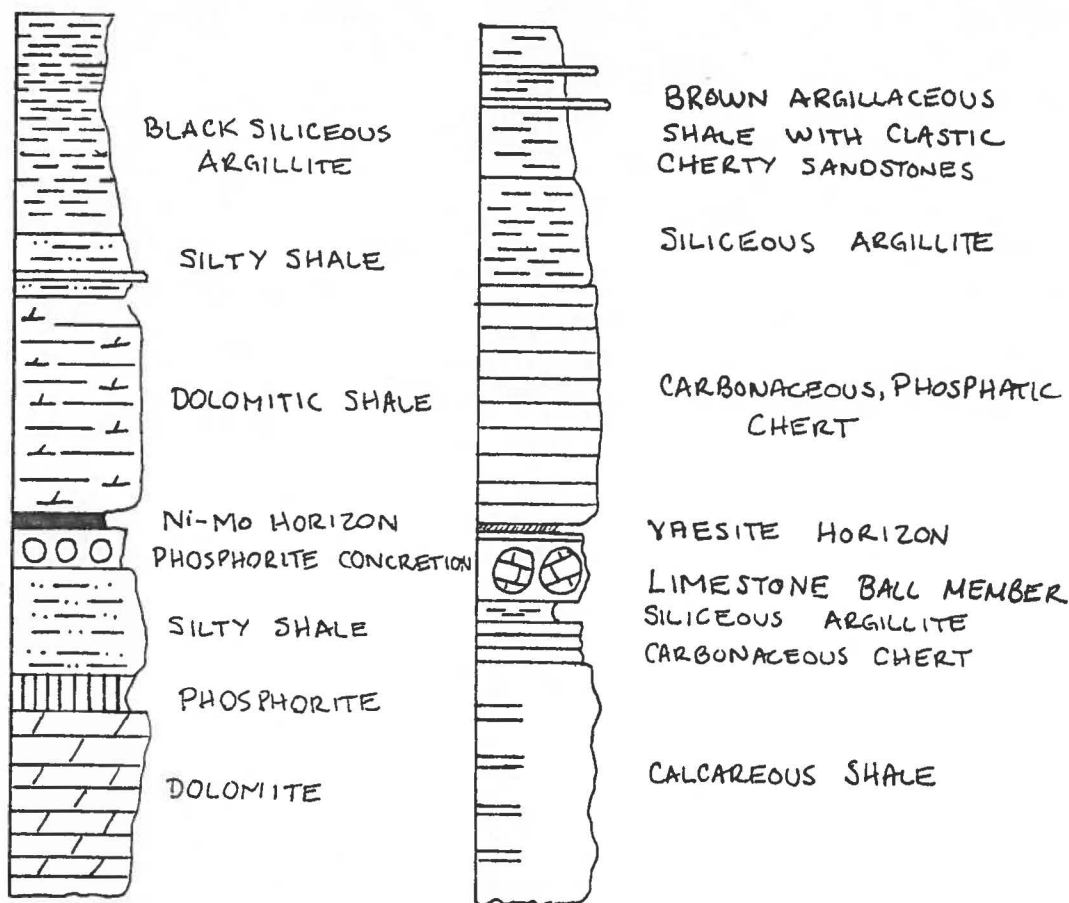 BLACK SILICEOUS
ARGILLITE
SILTY SHALE
DOLOMITIC SHALE
Ni-Mo HORIZON
PHOSPHORITE CONCRETION
SILTY SHALE
PHOSPHORITE
DOLOMITE
BROWN ARGILLACEOUS
SHALE WITH CLASTIC
CHERTY SANDSTONES
SILICEOUS ARGILLITE
CARBONACEOUS, PHOSPHATIC
CHERT
VAESITE HORIZON
LIMESTONE BALL MEMBER
SILICEOUS ARGILLITE
CARBONACEOUS CHERT
CALCAREOUS SHALE